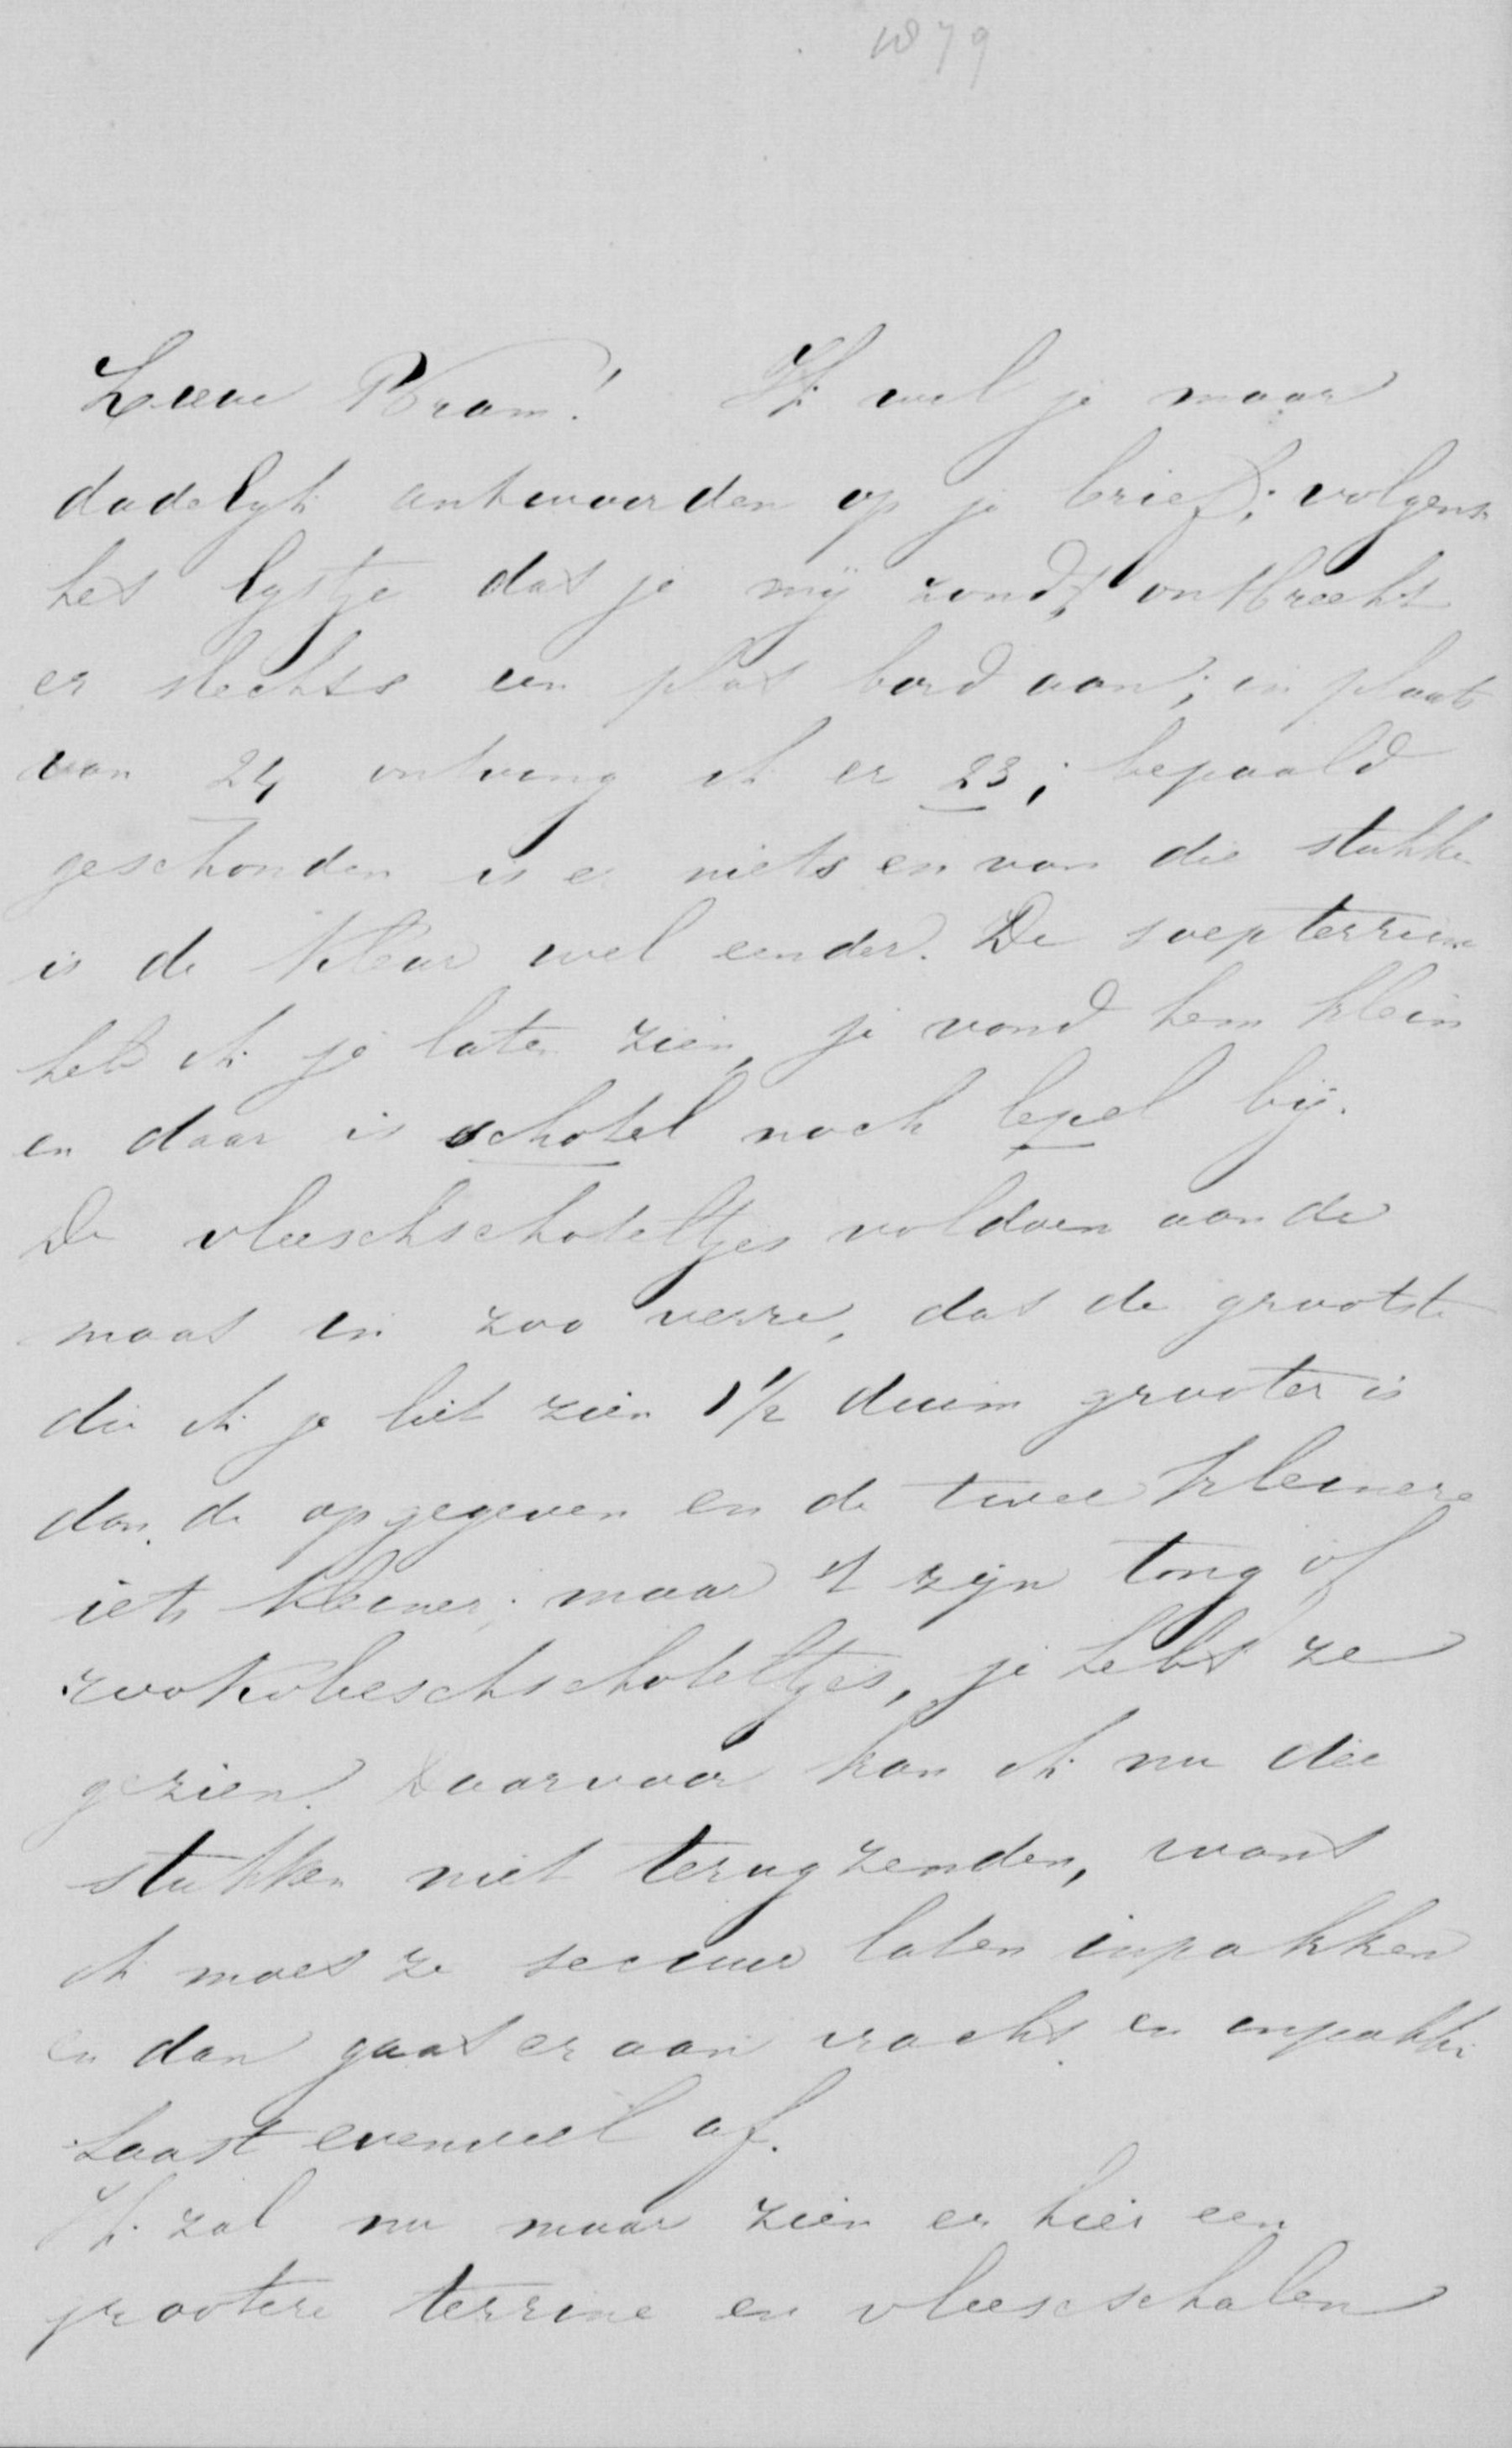 1879
Lieve Bram! Ik wil je maar
dadelyk antwoorden op je brief; volgens
het lystje dat je mij zondt ontbreekt
er slechts een plat bord aan; in plaats
van 24 ontving ik er 23; bepaald
geschonden is er niets en van die stukken
is de kleur wel eender. De soepterrine
heb ik je laten zien, je vond hem klein
en daar is schotel noch lepel bij.
De vleeschschoteltjes voldoen aan de
maat in zoo verre, dat de grootste
die ik je liet zien 1½ duim grooter is
dan de opgegeven en de twee kleinere
iets kleiner; maar 't zijn tong of
rookvleeschschoteltjes, je hebt ze
gezien. Daarvoor kan ik nu die
stukken niet terugzenden, want
ik moet ze secuur laten inpakken
en dan gaat er aan vracht en inpakken
haast evenveel af.
Ik zal nu maar zien er hier een
grootere terrine en vleeschalen